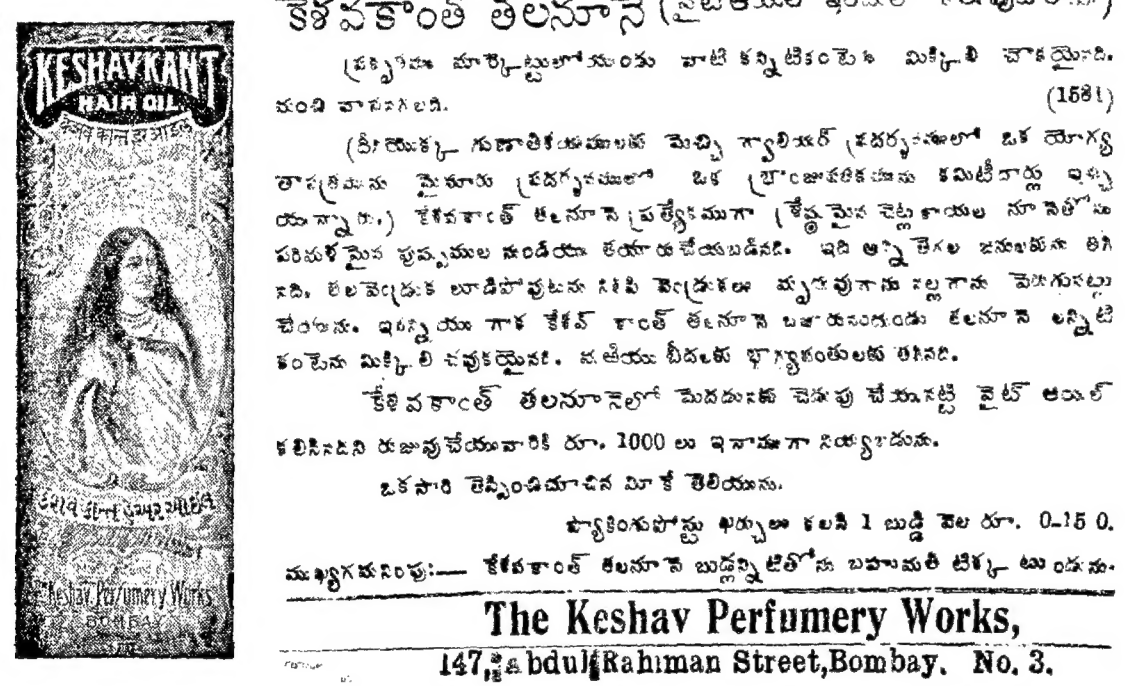 KESHAVKANT
HAIR OIL
केशव कान्त हेर आईल
કેશવ કાન્ત હેઅર આઈલ
Keshav Perfumery Works
BOMBAY
కేశవకాంత తలనూనె
ప్రకృతము మార్కెట్టులో నుండు వాటి కన్నిటికంటెను మిక్కిలి చౌకయైనది.
మంచి వాసనగలది. (1581)
(దీనియొక్క గుణాతిశయములకు మెచ్చి గ్వాలియర్ ప్రదర్శనములో ఒక యోగ్య
మైసూరు ప్రదర్శనములో ఒక కమిటీవారు ఇచ్చి
యున్నారు.) కేశవకాంత్ తలనూనె ప్రత్యేకముగా శ్రేష్ఠమైన చెట్ల కాయల నూనెతోను
పరిమళమైన పుష్పముల నుండియు తయారుచేయబడినది. ఇది అన్ని తెగల జనులకును తగి
నది. తలవెంద్రుక లూడిపోవుటను నిలిపి వెంద్రుకలు మృదువుగాను నల్లగాను పెరుగునట్లు
చేయును. ఇదన్నియు గాక కేశవ్ కాంత్ తలనూనె బజారునందుండు తలనూనె లన్నిటి
కంటెను మిక్కిలి చవుకయైనది. మరియు బీదలకు భాగ్యవంతులకు తగినది.
కేశవకాంత్ తలనూనెలో మెదడునకు చెరుపు చేయునట్టి వైట్ ఆయిల్
కలిసినదని రుజువుచేయువారికి రూ. 1000 లు ఇనాముగా నియ్యబడును.
ఒకసారి తెప్పించిచూచిన మీకే తెలియును.
ప్యాకింగుపోస్టు ఖర్చులు కలసి 1 బుడ్డి వెల రూ. 0-15 0.
ముఖ్యగమనింపు:— కేశవకాంత్ తలనూనె బుడ్లన్నిటితోను బహుమతి టిక్కట్టు ండును.
The Keshav Perfumery Works,
147, Abdul Rahiman Street, Bombay. No. 3.